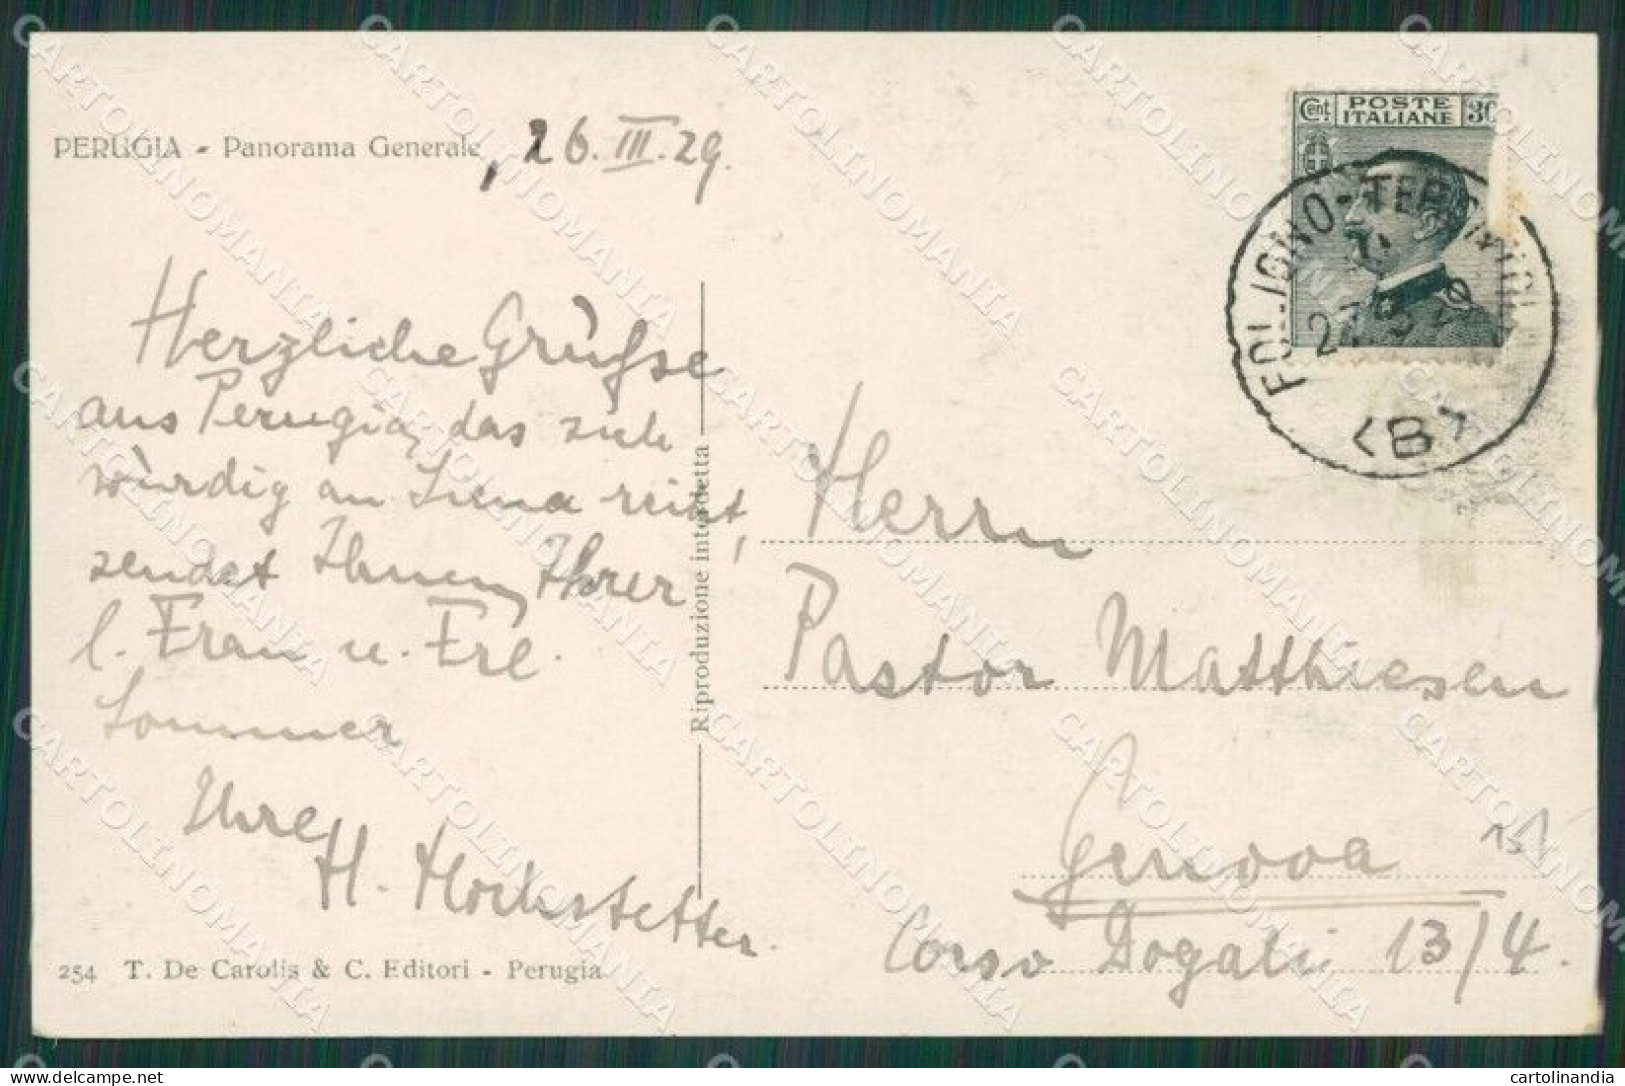 PERUGIA - Panorama Generale, 26.III.29.
Herzliche Grüsse
aus Perugia, das sich
würdig an Siena reiht,
sendet Ihnen, Ihrer
l. Frau u. Frl.
Sommer
Ihre
H. Hochstetter.
254 T. De Carolis & C. Editori - Perugia
Riproduzione interdetta
Cent. POSTE ITALIANE 30
FOLIGNO-TERONTOLA
27.3.29
(B)
Herrn
Pastor Matthiesen
Genova
15
Corso Dogali 13/4.
CARTOLINOMANIA
cartolinandia